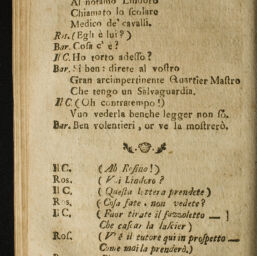 Al notamo Lindoro
Chiamato lo scolare
Medico de' cavalli.
Ros. (Egli è lui?)
Bar. Cosa c' è?
Il C. Ho torto adesso?
Bar. Sì ben: direte al vostro
Gran arcimpertinente Quartier Mastro
Che tengo un Salvaguardia.
Il C. (Oh contrattempo!)
Vuo vederla benche legger non sò.
Bar. Ben volentieri, or ve la mostrerò.
Il C. (Ah Rosina!)
Ros. (Voi Lindoro?
Il C. (Questa lettera prendete)
Ros. (Cosa fate. non vedete?
Il C. (Fuor tirate il fazzoletto — ]
Che cascar la lascier)
Ros. (V' è il tutore quì in prospetto —
Come mai la prenderò.)